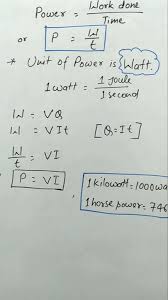 Power = Work done / Time
or P = W / t
* Unit of Power is Watt.
1 watt = 1 Joule / 1 second
W = VQ
W = VIt [Q = It]
W / t = VI
P = VI
1 kilowatt = 1000wa
1 horse power = 746